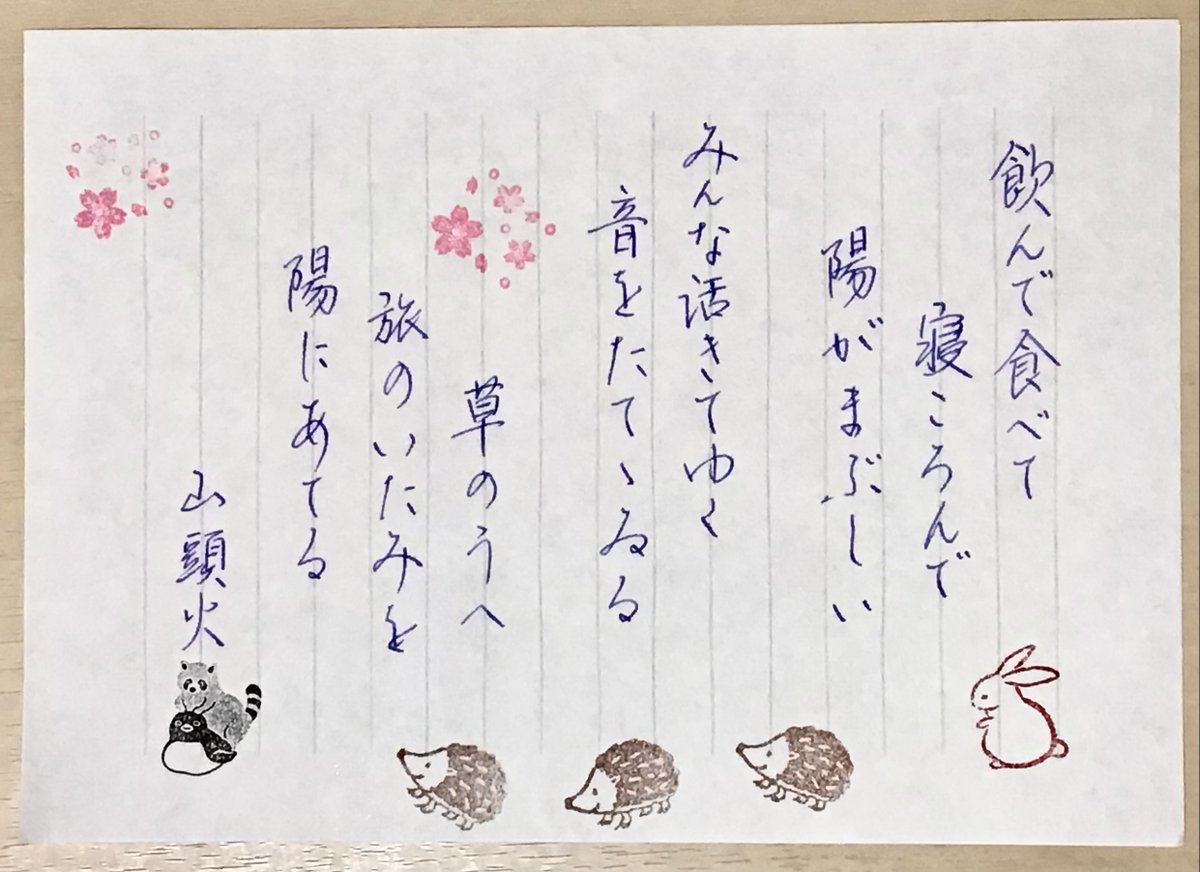 飲んで食べて
寝ころんで
陽がまぶしい
みんな活きてゆく
音をたてゝゐる
草のうへ
旅のいたみを
陽にあてる
山頭火